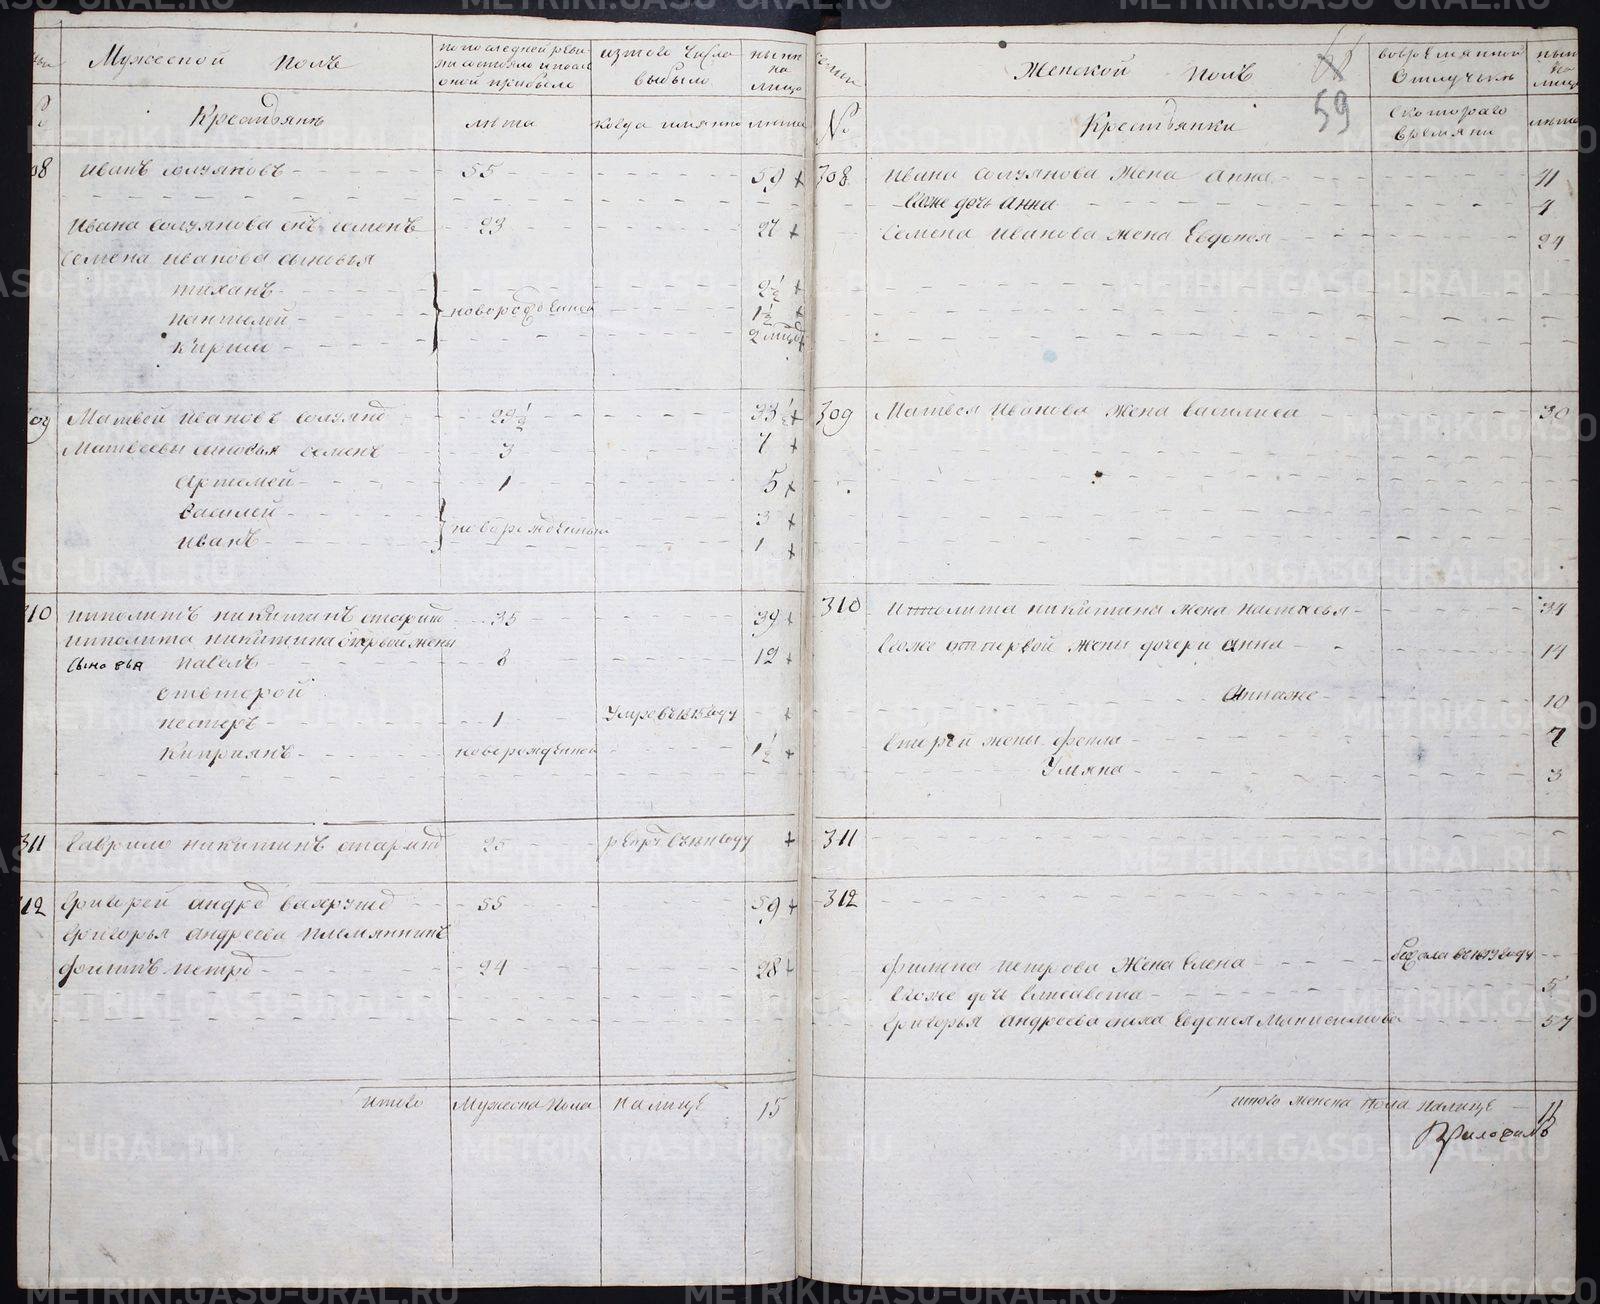 Мужеской полъ
по последней реви-
зии состояло и посл
оной прибыло
изтого числа
выбыло
нынѣ
на
лицо
Крестьянѣ
лѣта
когда имянно
лѣта
иванъ солуяновъ 55 59
Ивана солуянова снъ семенъ 23 27
Семена иванова сыновья
тиханъ 2 1/2
пантелей новорожденной 1 1/2
Кирила
309 Матвей ивановъ солуянов 29 1/2 33 1/2
Матвеевы сыновья семенъ 3 7
Артемей 1 5
василей 3
иванъ новорожденныи 1
310 иполитъ никитинъ 35 39
иполита никитина отпервой жены
сыновья павелъ 8 12
отвторой
нестеръ 1 Умре въ 1813 году
Киприянъ новорожденной 1 1/2
311 гаврило никитинъ 25
312 григорей андре 55 59
григорья андреева племянникъ
филипъ петро 24 28
итого Мужеска пола налице 15
Женской полъ
59
вовремянной
отлучкѣ
нынѣ
на
лицо
№
Крестьянки
скотораго
времяни
лѣта
308 ивана солуянова жена анна 41
Егоже дочь анна 4
Семена иванова жена Евдокея 24
309 Матвея иванова жена василиса 30
310 иполита никитина жена настасья 34
Егоже отпервой жены дочери анна 14
Аннаже 10
второй жены фекла 7
Ульяна 3
311
312
филипа петрова жена елена
Егоже дочь елисавета 5
григорья андреева Евдокея 57
итого женска пола налице 11